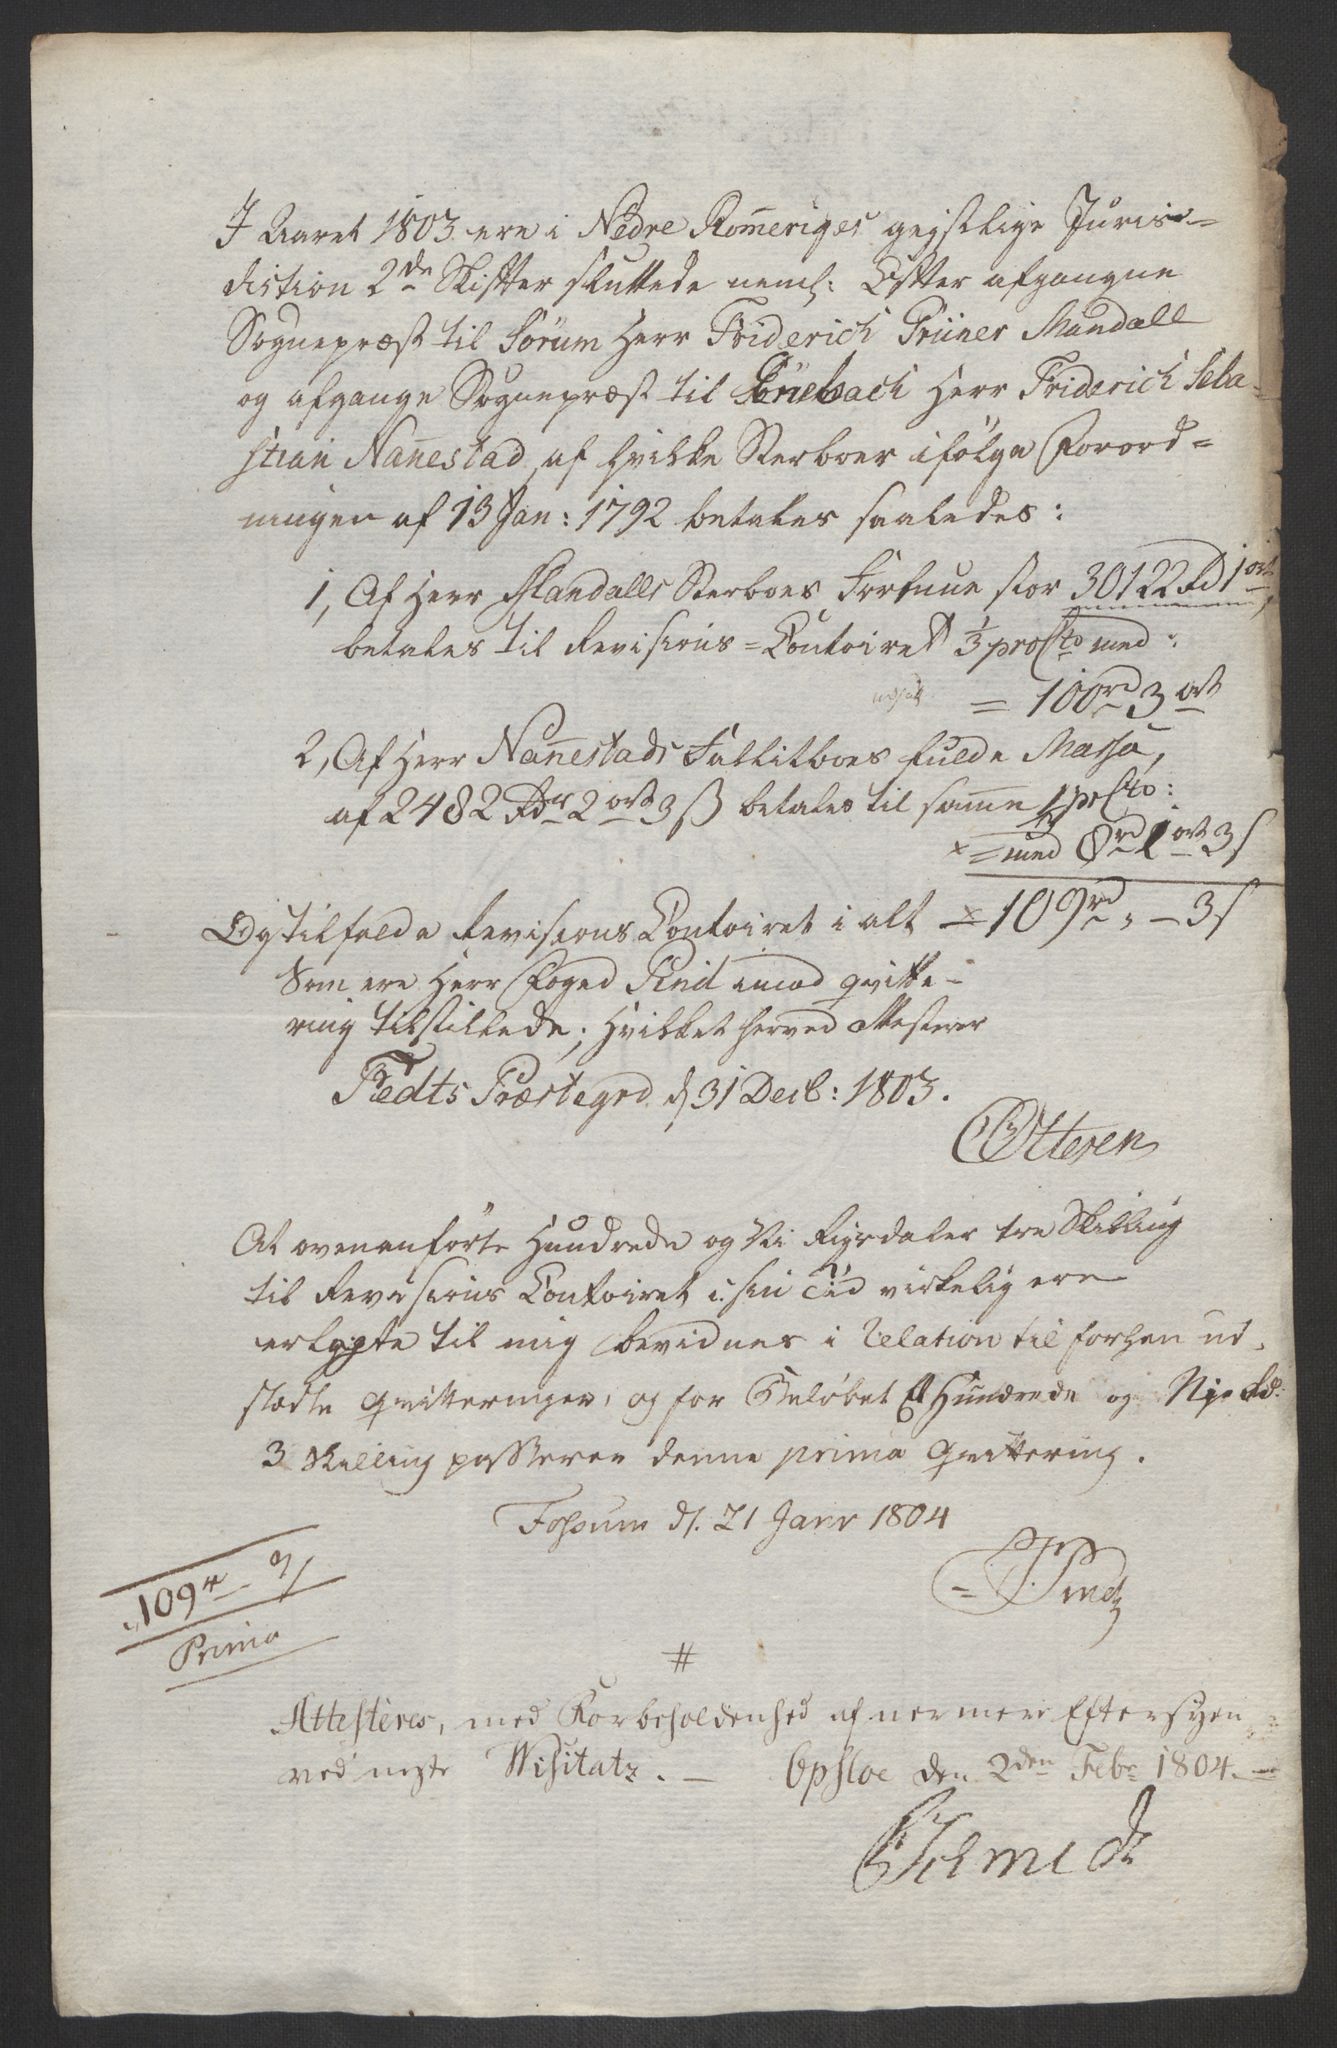 I Aaret 1803 ere i Nedre Rom̅eriges gejstlige Juris-
diction 2de Skifter sluttede neml: Efter afgangne
Sognepræst til Sørum Herr Friderich Grüner Mandall
og afgangne Sognepræst til Herr Friderich Seba-
stian Nan̅estad, af hvilke Sterboer ifølge Forord-
ningen af 13 Jan: 1792 betales saaledes:
1, Af Herr Mandalls Sterboes Formue stor 30122 Rd 1 ort
betales til Revisions-Contoiret ⅓ proCto med:
= 100rd 3 ort
2, Af Herr Nan̅estads Fallitboes fulde Massa,
af 2482 Rdr 2 ort 3 ß betales til sam̅e ⅓ prCto:
= med 8rd 1 ort 3 s
Og tilfalde Revisions Contoiret i alt 109rd " - 3 s
Som ere Herr Foged Pind imod qvitte-
ring tilstillede; hvilket herved attesterer
Fedts Præstegrd d 31 Decb: 1803.
Ottesen
At ovenanførte Hundrede og Ni Rigsdaler tre Skilling
til Revisions Contoiret i sin Tid virkelig ere
erlagte til mig bevidnes i Relation til forhen ud-
stædte Qvitteringer, og for Beløbet Et Hundrede og Nye Rd:
3 Skilling passerer denne prima Qvittering.
Fossum d. 21 Janr 1804
Pind
109 rd - 3 s
Prima
#
Attesteres, med Forbeholdenhed af nermere Eftersyen
ved neste Visitatz. - Opsloe den 2den Febr 1804. -
Schmidt